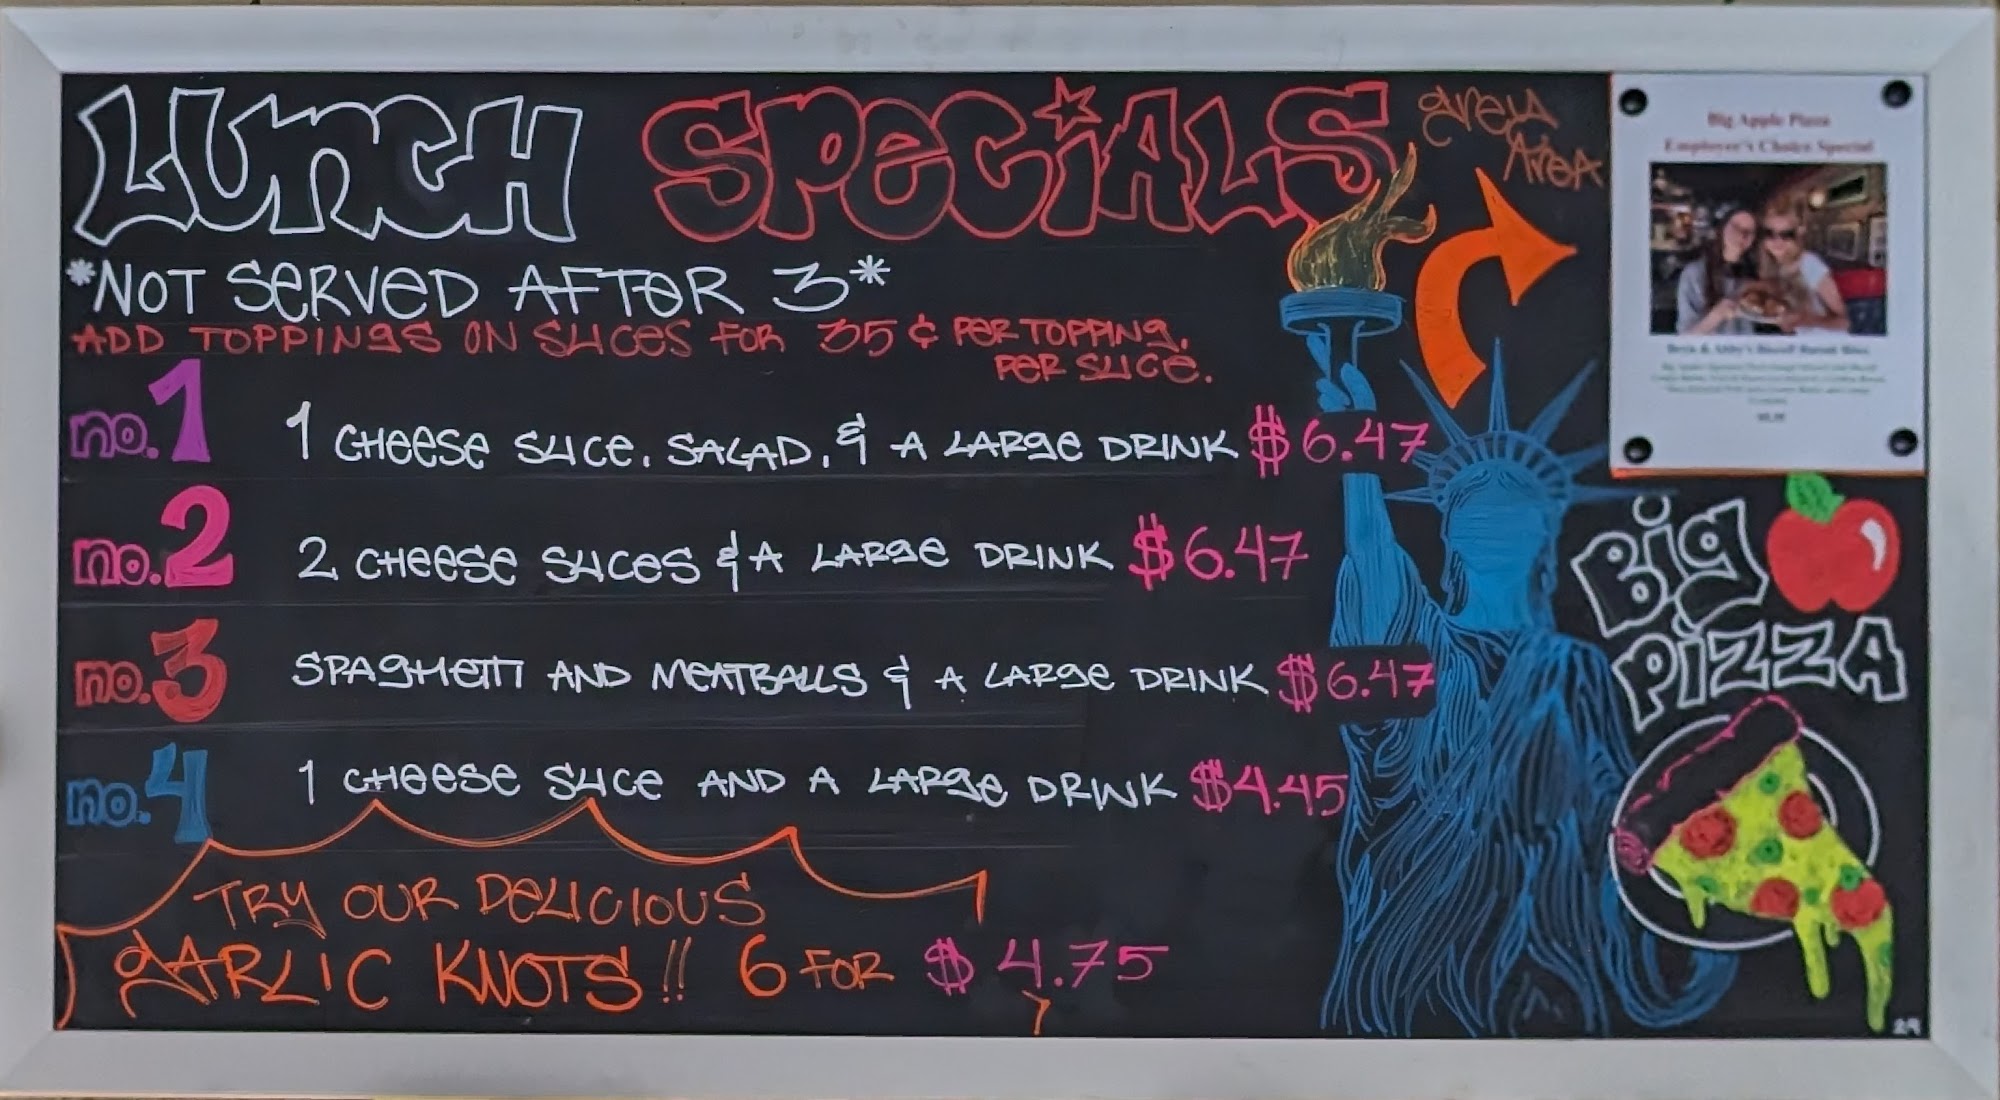 LUNCH SPECIALS
Grey Area
*NOT SERVED AFTER 3*
ADD TOPPINGS ON SLICES FOR 35¢ PER TOPPING,
PER SLICE.
no.1 1 CHEESE SLICE, SALAD, & A LARGE DRINK $6.47
no.2 2 CHEESE SLICES & A LARGE DRINK $6.47
no.3 SPAGHETTI AND MEATBALLS & A LARGE DRINK $6.47
no.4 1 CHEESE SLICE AND A LARGE DRINK $4.45
TRY OUR DELICIOUS
GARLIC KNOTS!! 6 FOR $4.75
Big Apple Pizza
Employee's Choice Special
BIG
PIZZA